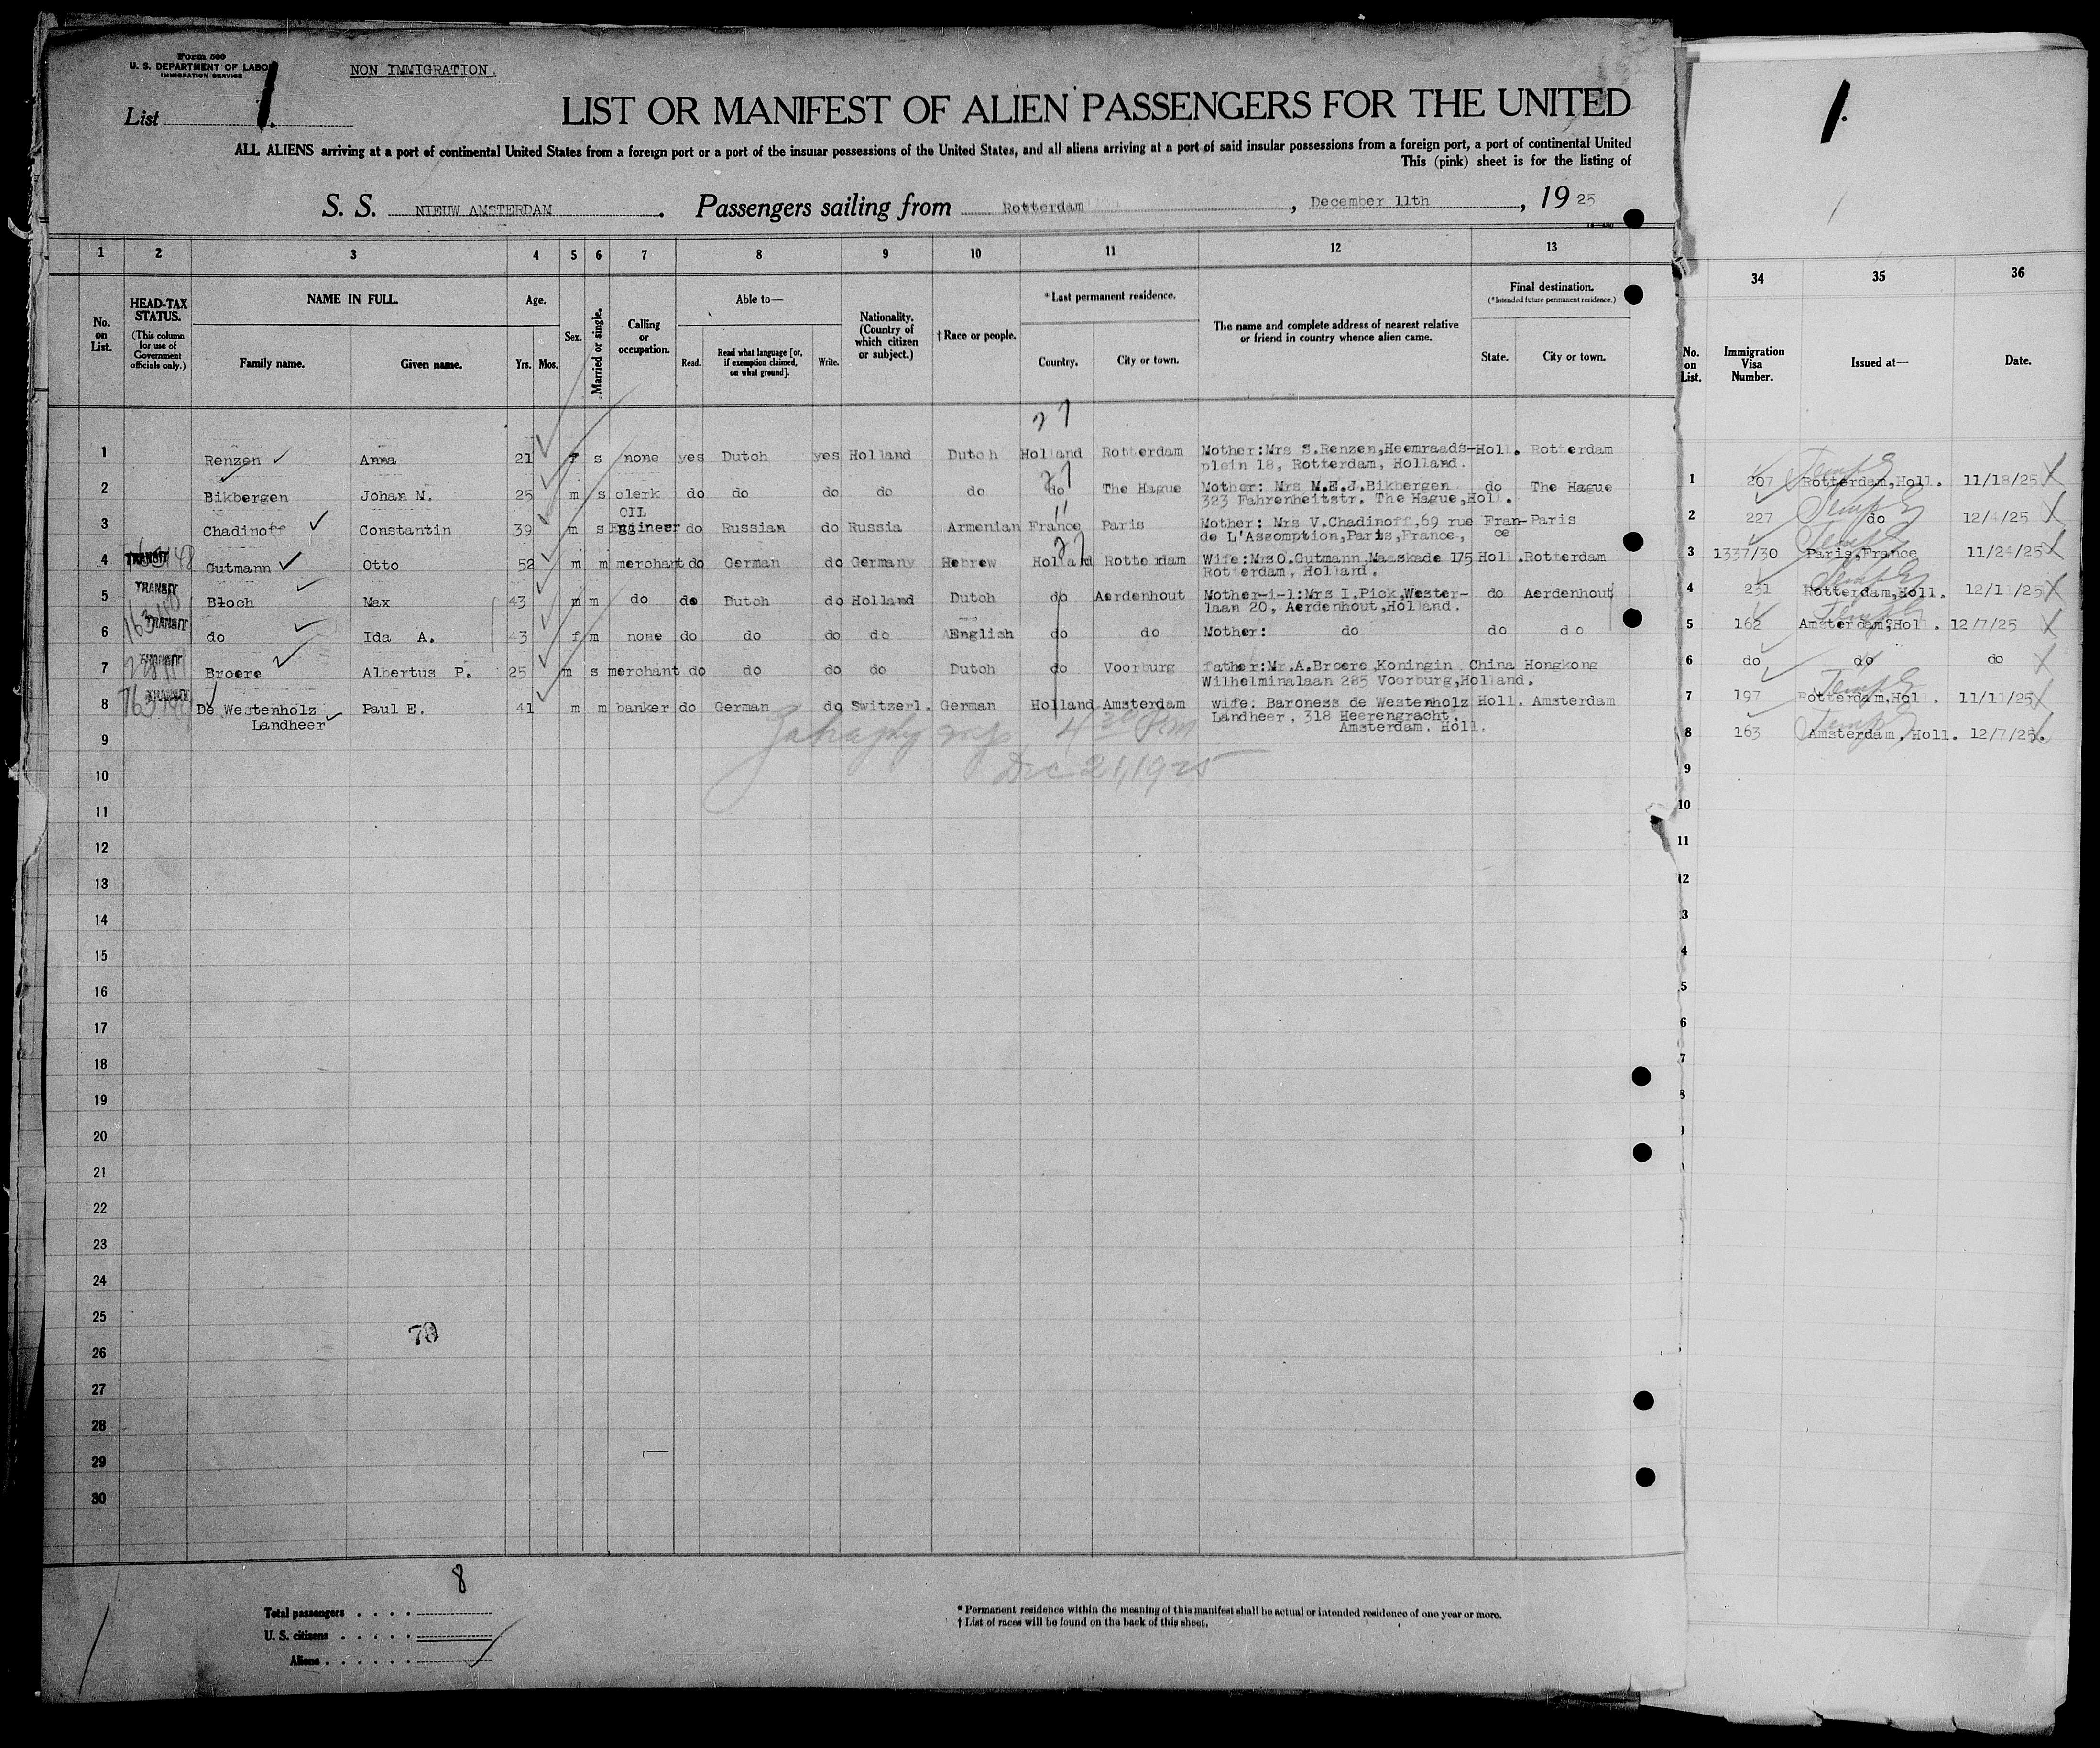 Form 500
U. S. DEPARTMENT OF LABOR
IMMIGRATION SERVICE
NON IMMIGRATION.
List 1.
LIST OR MANIFEST OF ALIEN PASSENGERS FOR THE UNITED
ALL ALIENS arriving at a port of continental United States from a foreign port or a port of the insular possessions of the United States, and all aliens arriving at a port of said insular possessions from a foreign port, a port of continental United
This (pink) sheet is for the listing of
S. S. NIEUW AMSTERDAM. Passengers sailing from Rotterdam, December 11th, 19 25
1 2 3 4 5 6 7 8 9 10 11 12 13
No. on List.
HEAD-TAX STATUS.
(This column for use of Government officials only.)
NAME IN FULL.
Family name. Given name.
Age.
Yrs. Mos.
Sex.
Married or single.
Calling or occupation.
Able to—
Read. Read what language [or, if exemption claimed, on what ground]. Write.
Nationality. (Country of which citizen or subject.)
† Race or people.
*Last permanent residence.
Country. City or town.
The name and complete address of nearest relative or friend in country whence alien came.
Final destination.
(*Intended future permanent residence.)
State. City or town.
27
1 Renzen Anna 21 f s none yes Dutch yes Holland Dutch Holland Rotterdam Mother:Mrs S.Renzen,Heemraads- Holl. Rotterdam
plein 18, Rotterdam, Holland.
27
2 Bikbergen Johan M. 25 m s clerk do do do do do do The Hague Mother: Mrs M.E.J.Bikbergen do The Hague
323 Fahrenheitstr. The Hague,Holl.
OIL
11
3 Chadinoff Constantin 39 m s Engineer do Russian do Russia Armenian France Paris Mother: Mrs V.Chadinoff,69 rue Fran- Paris
de L'Assomption,Paris,France., ce
27
4 TRANSIT Gutmann Otto 52 m m merchant do German do Germany Hebrew Holland Rotterdam Wife:Mrs O.Gutmann,Maaskade 175 Holl. Rotterdam
Rotterdam, Holland.
5 TRANSIT Bloch Max 43 m m do do Dutch do Holland Dutch do Aerdenhout Mother-i-l:Mrs I.Pick,Wester- do Aerdenhout
laan 20, Aerdenhout,Holland.
6 TRANSIT do Ida A. 43 f m none do do do do English do do Mother: do do do
7 TRANSIT Broere Albertus P. 25 m s merchant do do do do Dutch do Voorburg father:Mr.A.Broere,Koningin China Hongkong
Wilhelminalaan 285 Voorburg,Holland.
8 TRANSIT De Westenholz Paul E. 41 m m banker do German do Switzerl. German Holland Amsterdam wife: Baroness de Westenholz Holl. Amsterdam
Landheer Landheer, 318 Heerengracht,
Amsterdam. Holl.
9
4 30 PM
10
Dec 21, 1925
11
12
13
14
15
16
17
18
19
20
21
22
23
24
25
70
26
27
28
29
30
8
Total passengers
U. S. citizens
Aliens
* Permanent residence within the meaning of this manifest shall be actual or intended residence of one year or more.
† List of races will be found on the back of this sheet.
1.
34 35 36
No. on List.
Immigration Visa Number.
Issued at—
Date.
1 207 Rotterdam,Holl. 11/18/25
2 227 do 12/4/25
3 1337/30 Paris,France 11/24/25
4 231 Rotterdam,Holl. 12/11/25
5 162 Amsterdam,Holl. 12/7/25
6 do do do
7 197 Rotterdam,Hol. 11/11/25
8 163 Amsterdam, Holl. 12/7/25.
9
10
11
12
3
4
5
6
7
8
9